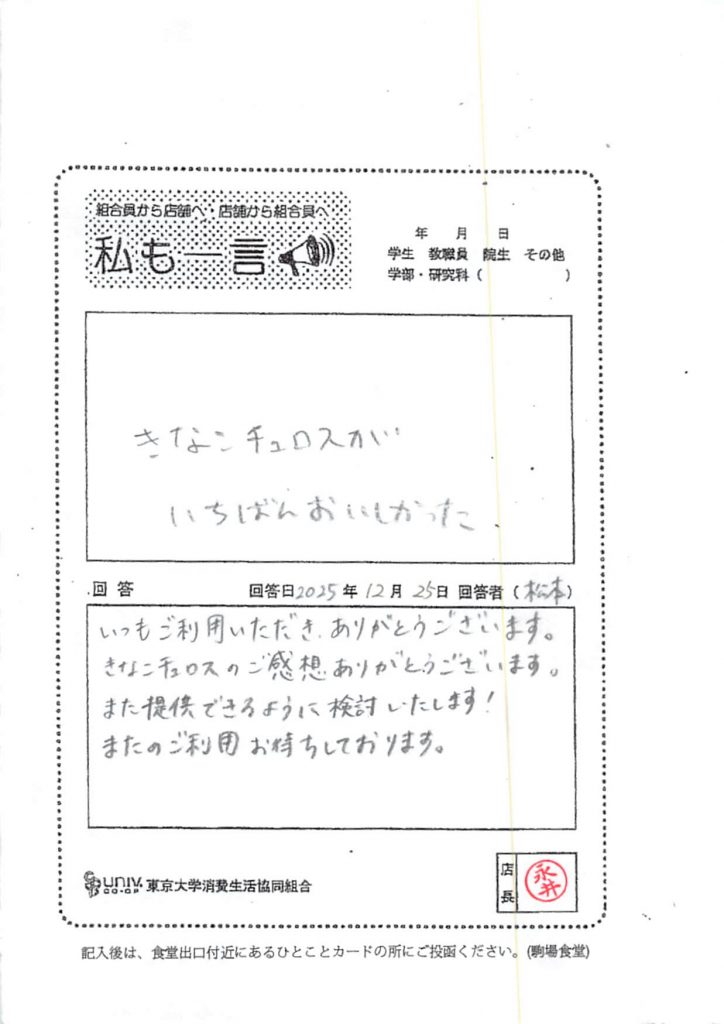 組合員から店舗へ・店舗から組合員へ
私も一言
年 月 日
学生 教職員 院生 その他
学部・研究科（ ）
きなこチュロスが
いちばんおいしかった
回答 回答日2025年12月25日 回答者（松本）
いつもご利用いただき、ありがとうございます。
きなこチュロスのご感想ありがとうございます。
また提供できるように検討いたします！
またのご利用お待ちしております。
univ. CO-OP 東京大学消費生活協同組合
店長 永井
記入後は、食堂出口付近にあるひとことカードの所にご投函ください。(駒場食堂)